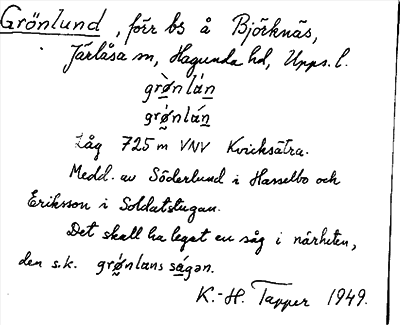 Grönlund, förr bs å Björknäs,
Järlåsa sn, Hagunda hd, Upps. l.
grø̀nlán
grø̀nlán
Låg 725 m VNV Kvicksätra.
Medd. av Söderlund i Hasselbo och
Eriksson i Soldatstugan.
Det skall ha legat en såg i närheten,
den s.k. grø̀nlans ságən.
K.-H. Tapper 1949.